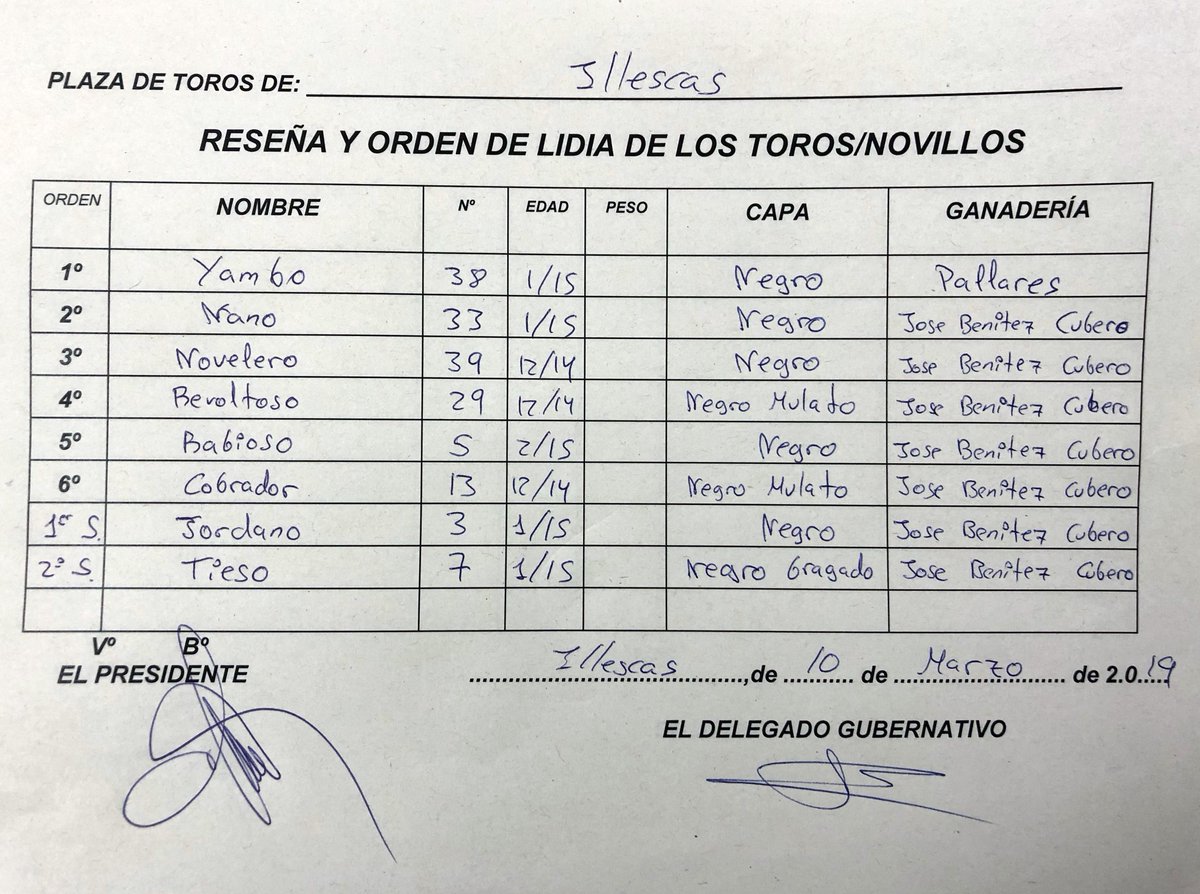 PLAZA DE TOROS DE: Illescas
RESEÑA Y ORDEN DE LIDIA DE LOS TOROS/NOVILLOS
ORDEN NOMBRE Nº EDAD PESO CAPA GANADERÍA
1º Yambo 38 1/15 Negro Pallares
2º Nano 33 1/15 Negro Jose Benitez Cubero
3º Novelero 39 12/14 Negro Jose Benitez Cubero
4º Revoltoso 29 12/14 Negro Mulato Jose Benitez Cubero
5º Babioso 5 2/15 Negro Jose Benitez Cubero
6º Cobrador 13 12/14 Negro Mulato Jose Benitez Cubero
1er S. Jordano 3 1/15 Negro Jose Benitez Cubero
2º S. Tieso 7 1/15 Negro Bragado Jose Benitez Cubero
Vº Bº
EL PRESIDENTE
Illescas, de 10 de Marzo de 2.019
EL DELEGADO GUBERNATIVO